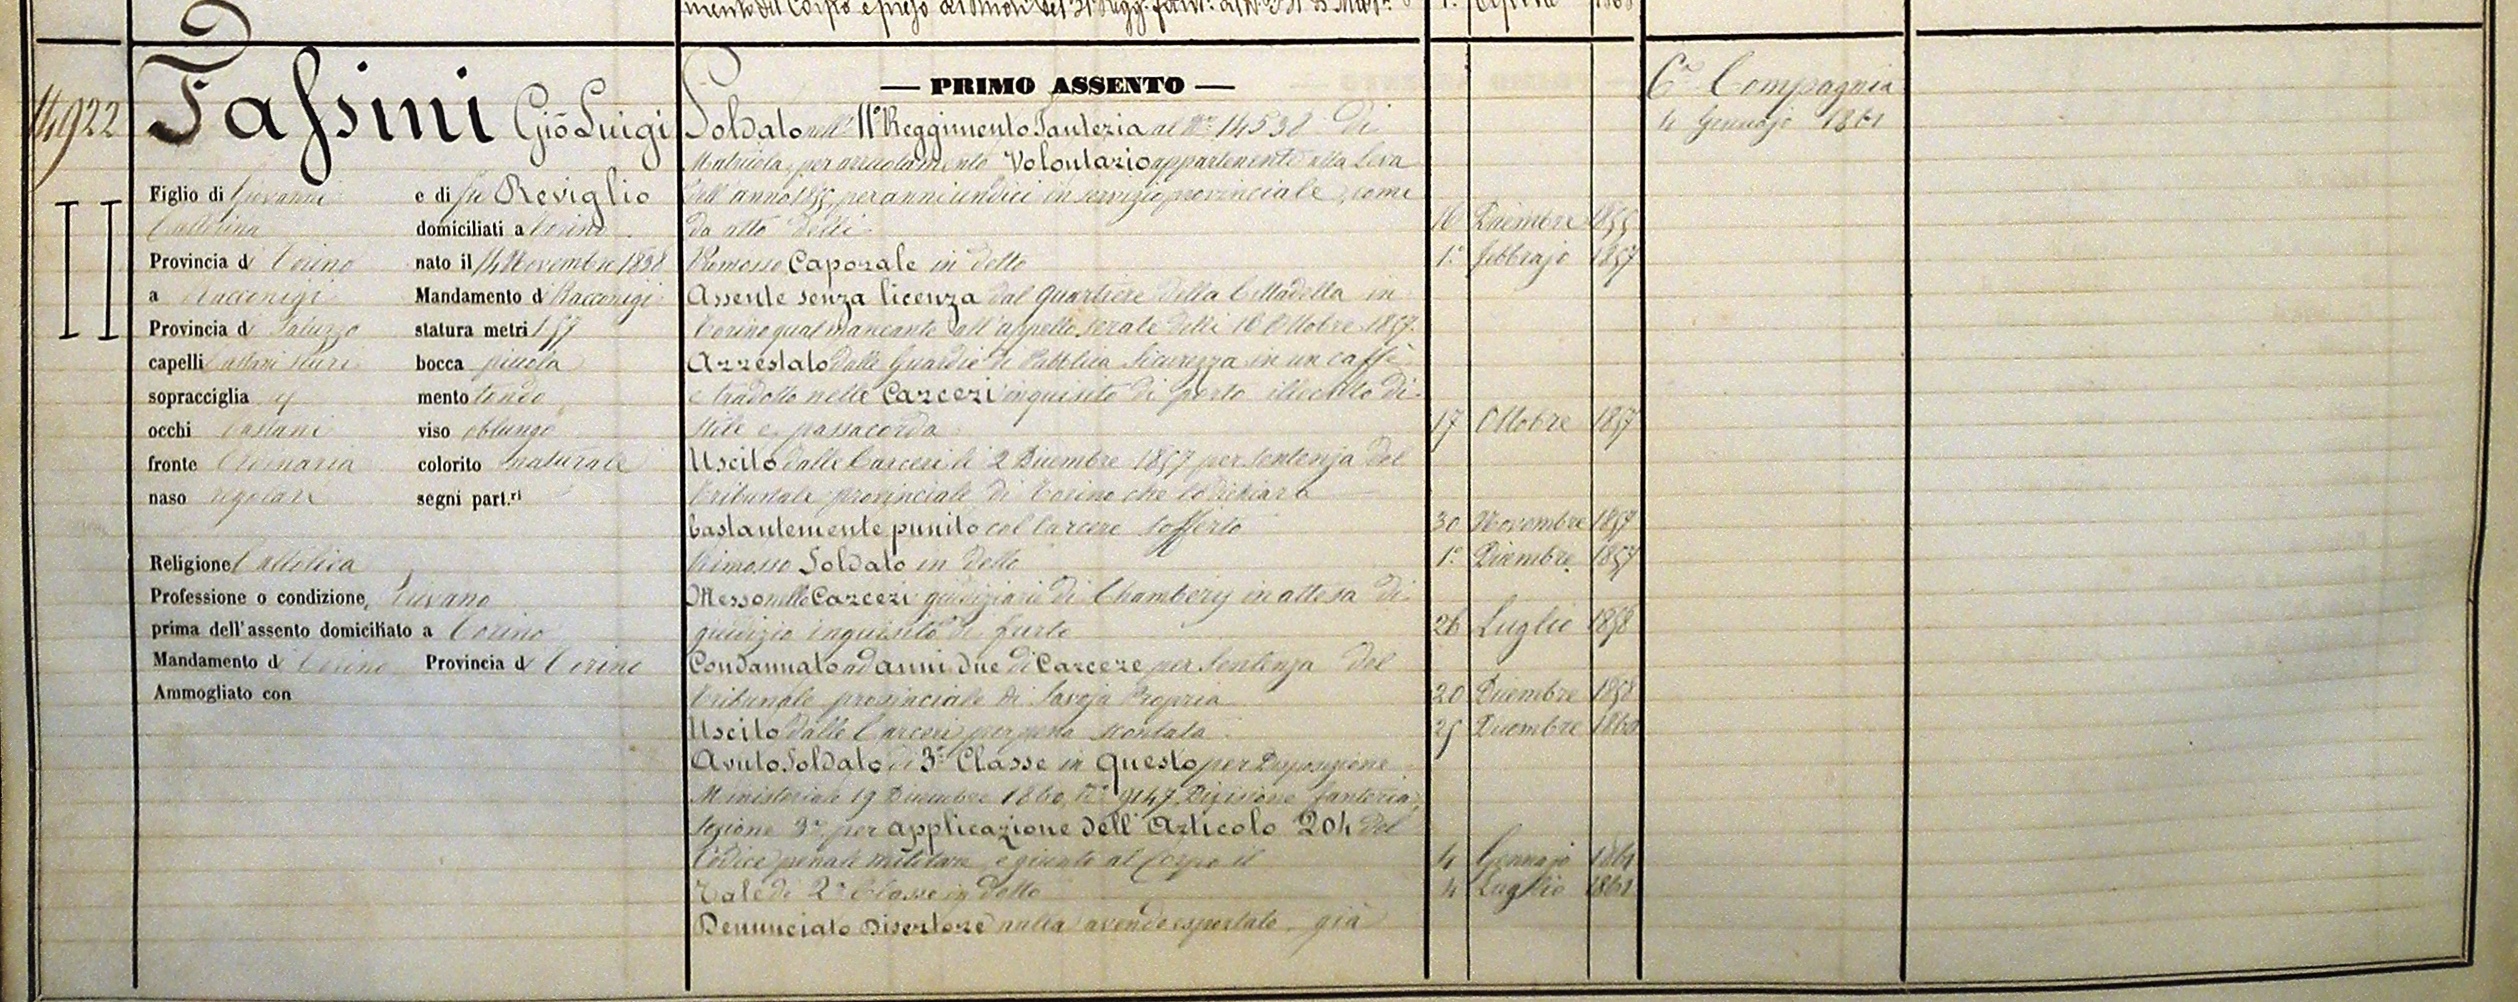 14922
Tassini Gio Luigi
II
Figlio di Giovanni e di fu Reviglio
Catterina domiciliati a Torino
Provincia di Torino nato il 14 Novembre 1838
a Racconigi Mandamento di Racconigi
Provincia di Saluzzo statura metri 1 57
capelli castani scuri bocca piccola
sopracciglia mento tondo
occhi castani viso oblungo
fronte ordinaria colorito naturale
naso regolare segni part.ri
Religione Cattolica
Professione o condizione,
prima dell'assento domiciliato a Torino
Mandamento di Torino Provincia di Torino
Ammogliato con
— PRIMO ASSENTO —
Soldato nell' 11° Reggimento Fanteria al N° 14538 di
Matricola, per arruolamento Volontario appartenente alla Leva
dell'anno per anni undici in servizio provinciale, come
da atto delli 16 Dicembre 1855
Promosso Caporale in detto 1° febbrajo 1857
Assente senza licenza dal Quartiere della Cittadella in
Torino qual mancante all'appello serale delli 16 Ottobre 1857.
Arrestato dalle Guardie di Pubblica Sicurezza in un caffè
e tradotto nelle Carceri inquisito di porto illecito di
stile e passacorda 17 Ottobre 1857
Uscito dalle Carceri li 2 Dicembre 1857 per sentenza del
Tribunale provinciale di Torino che lo dichiarò
bastantemente punito col carcere sofferto 30 Novembre 1857
Rimosso Soldato in detto 1° Dicembre 1857
Messo nelle Carceri giudiziarie di Chambery in attesa di
giudizio inquisito di furto 26 Luglio 1858
Condannato ad anni due di Carcere per sentenza del
Tribunale provinciale di Savoja Propria 20 Dicembre 1858
Uscito dalle Carceri per pena scontata 25 Dicembre 1860
Avuto Soldato di 3a Classe in Questo per Disposizione
Ministeriale 19 Dicembre 1860, N° 9147, Divisione fanteria,
Sezione 3a per applicazione dell'Articolo 204 del
Codice penale militare, e giunto al Corpo il 4 Gennajo 1861
Tale di 2a Classe in detto 4 Luglio 1861
Denunciato Disertore nulla avendo esportato, già
6a Compagnia
4 Gennajo 1861